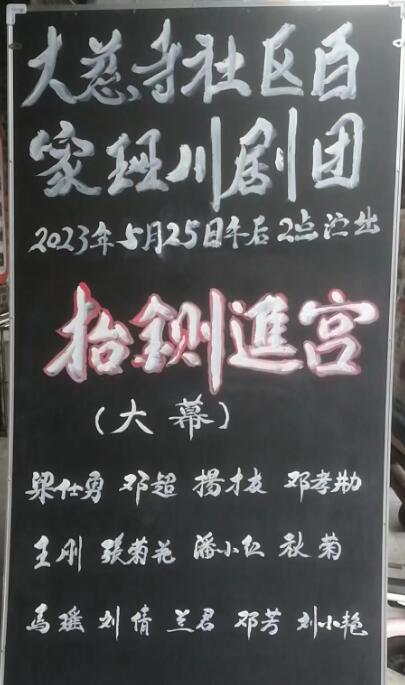 大慈寺社区百
家班川剧团
2023年5月25日午后2点演出
抬鍘進宫
（大幕）
梁仕勇 邓超 揚才友 邓孝勋
王刚 張菊花 潘小红 秋菊
马瑶 刘倩 兰君 邓芳 刘小艳